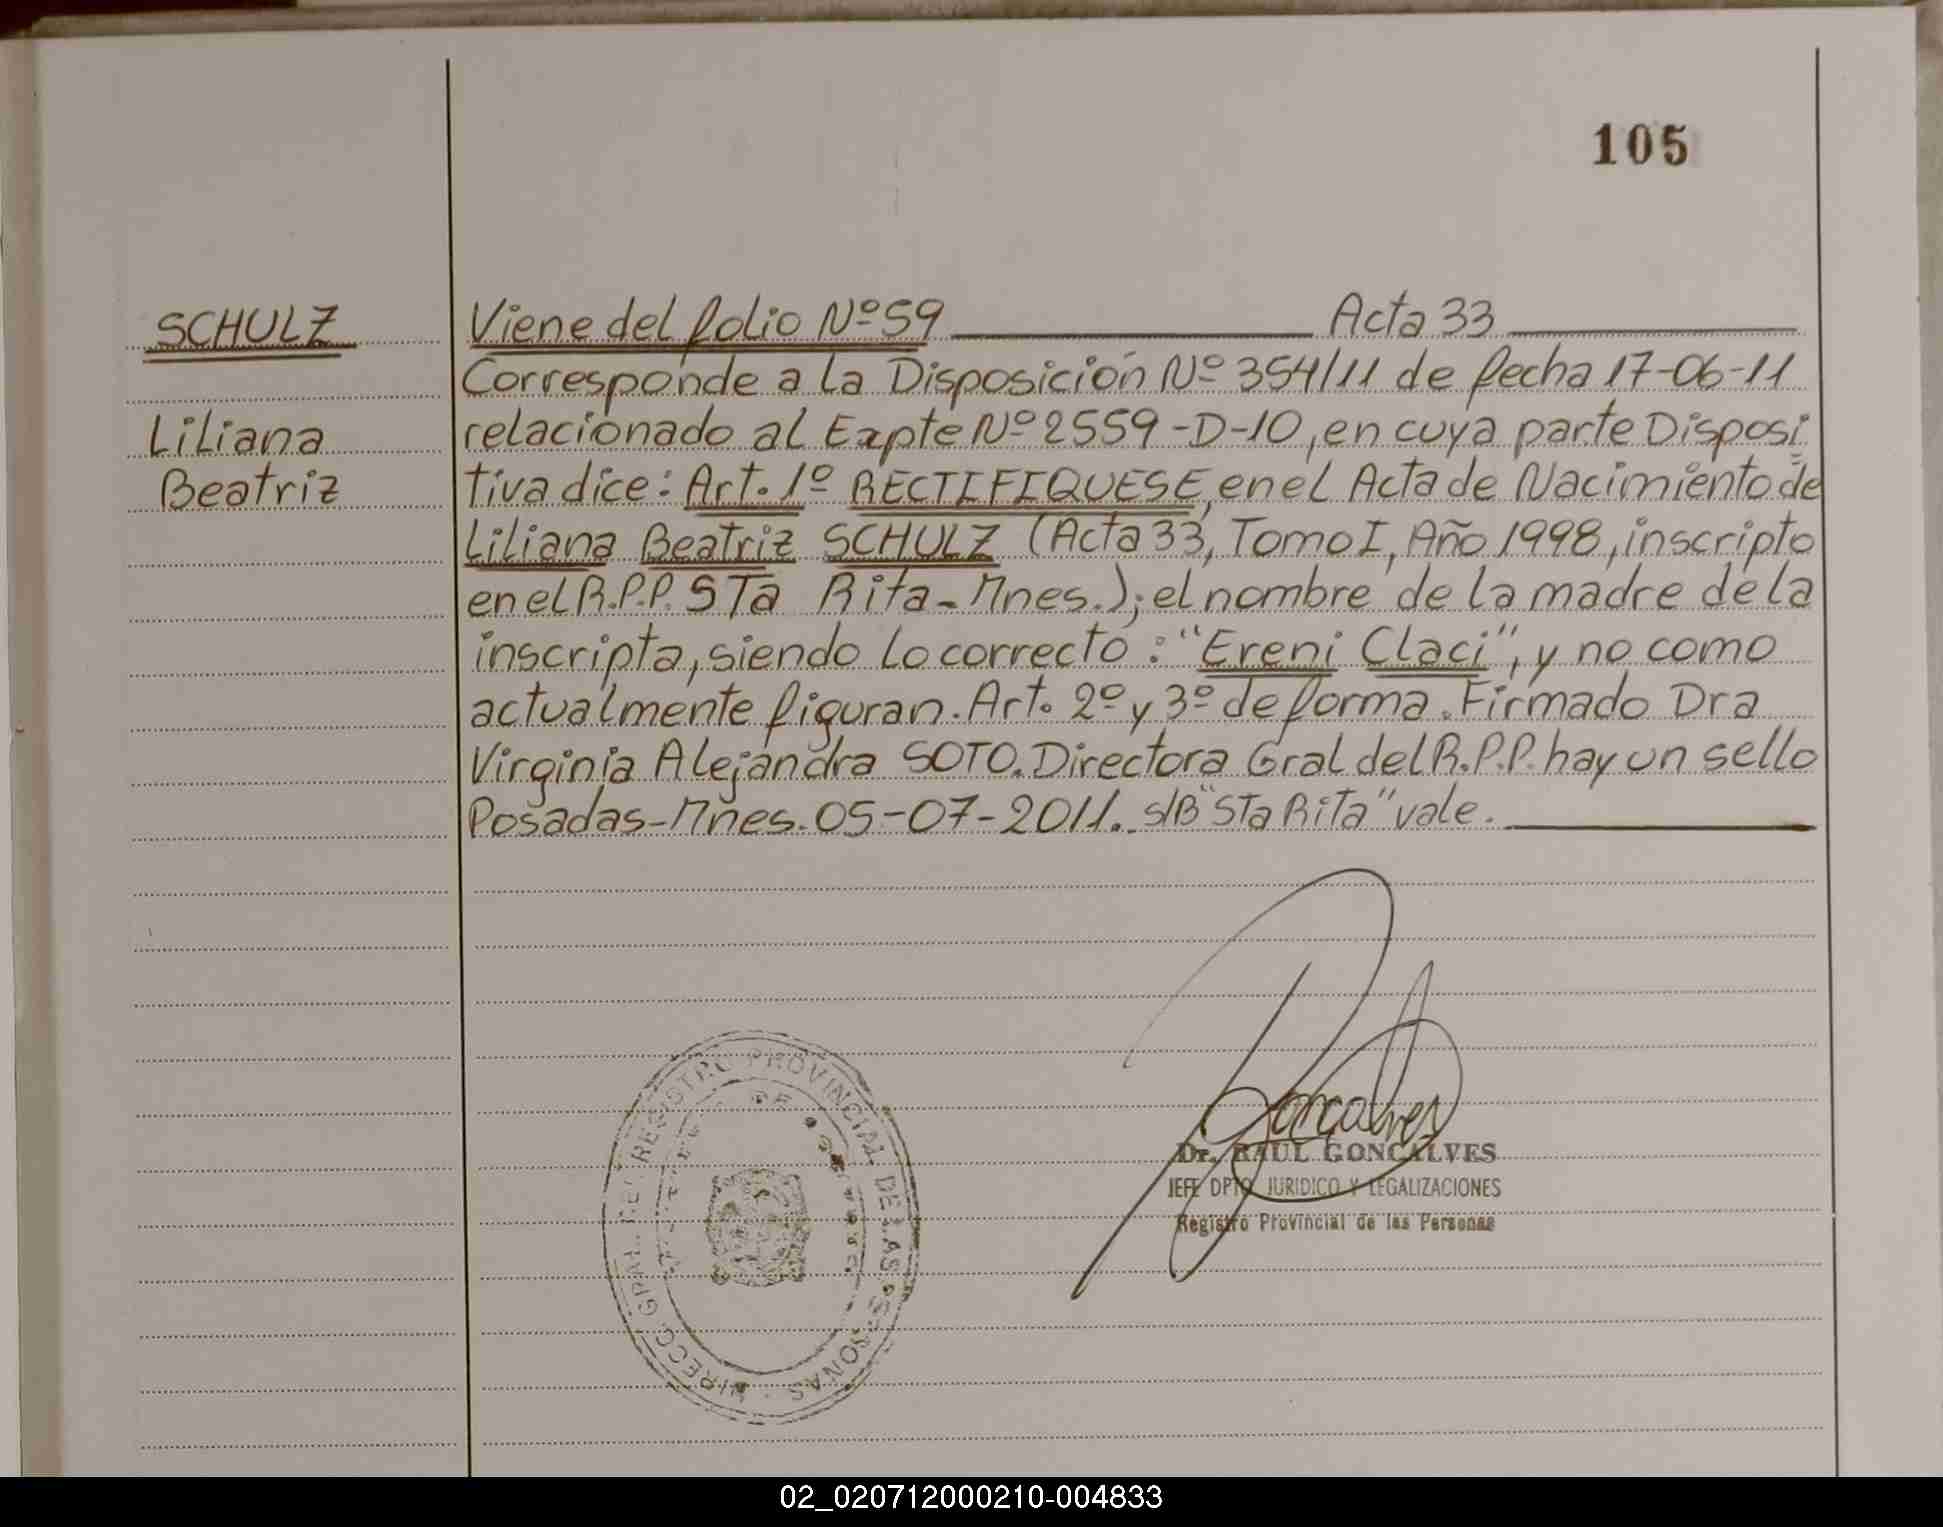 105
SCHULZ
Liliana
Beatriz
Viene del folio Nº 59 Acta 33
Corresponde a la Disposición Nº 354/11 de fecha 17-06-11
relacionado al Expte Nº 2559-D-10, en cuya parte Disposi
tiva dice: Art. 1º RECTIFIQUESE, en el Acta de Nacimiento de
Liliana Beatriz SCHULZ (Acta 33, Tomo I, Año 1998, inscripto
en el R.P.P. STa Rita - Mnes.); el nombre de la madre de la
inscripta, siendo lo correcto: "Ereni Claci", y no como
actualmente figuran. Art. 2º y 3º de forma. Firmado Dra
Virginia Alejandra SOTO. Directora Gral del R.P.P. hay un sello
Posadas-Mnes. 05-07-2011. s/B "STa Rita" vale.
Goncalves
Dr. RAUL GONCALVES
JEFE DPTO JURIDICO Y LEGALIZACIONES
Registro Provincial de las Personas
DIRECC. GRAL. DEL REGISTRO PROVINCIAL DE LAS PERSONAS
02_020712000210-004833